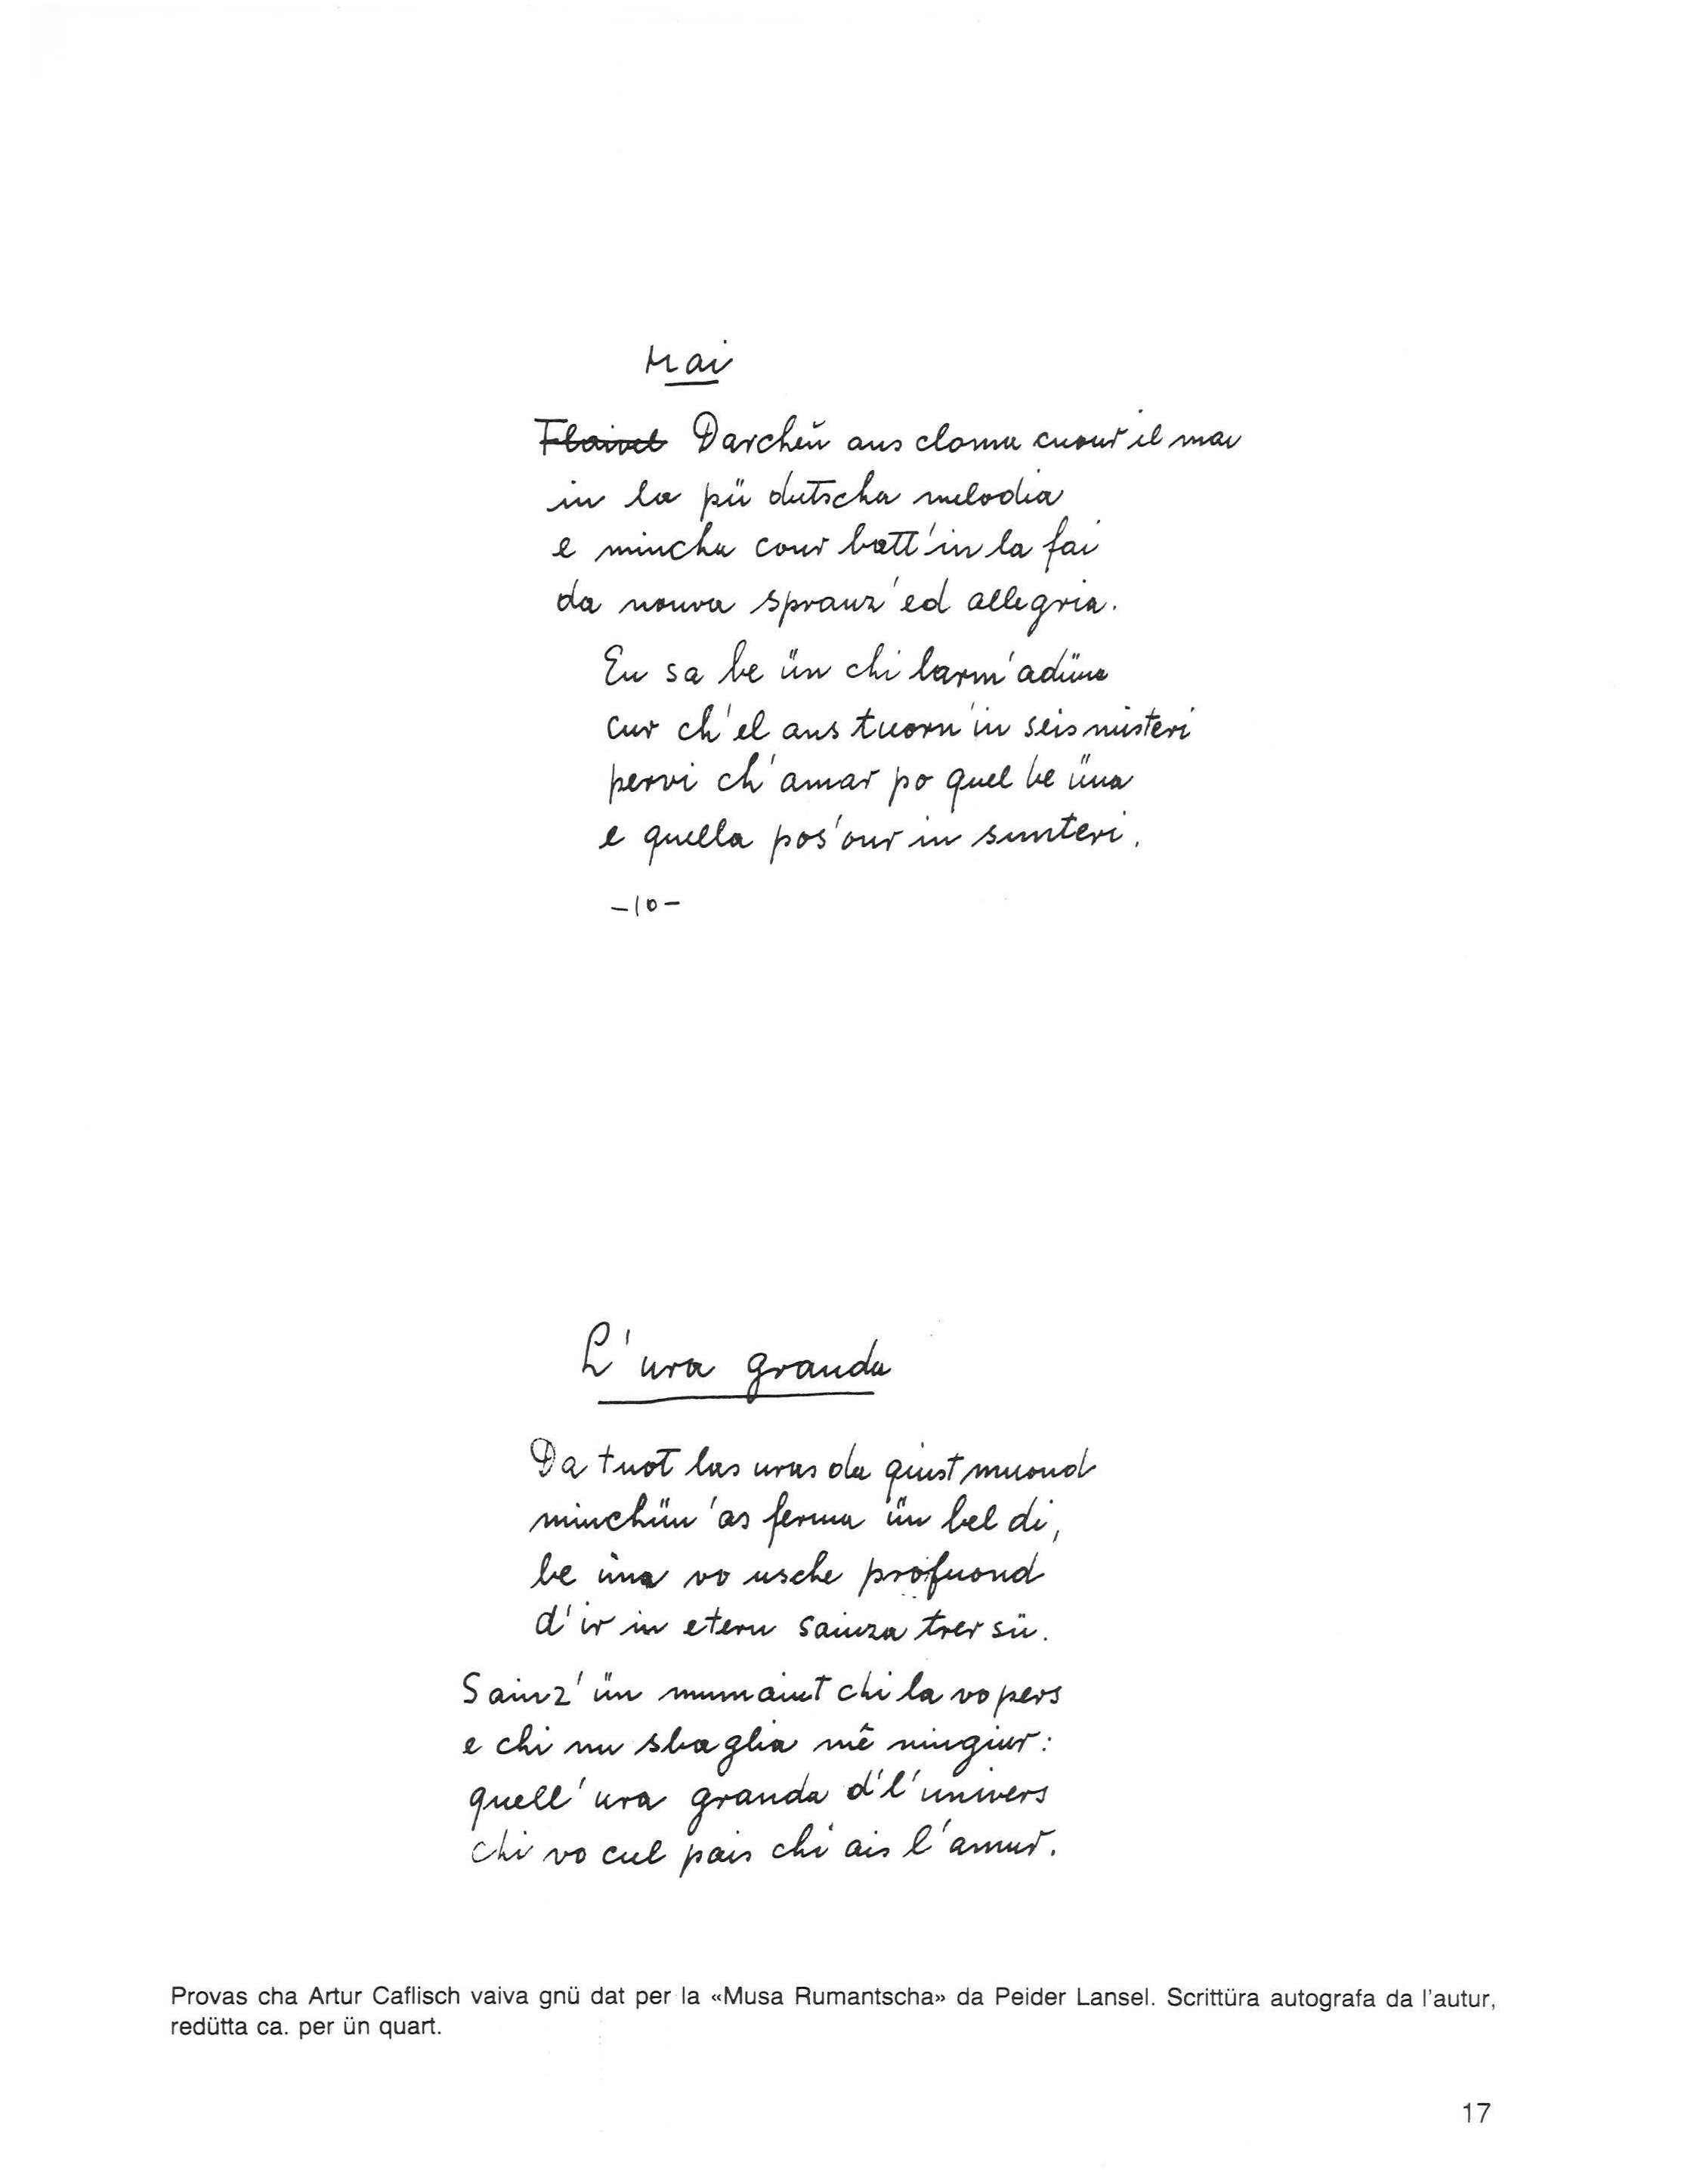 Mai
Flaivel Darcheu ans clama cuour il mai
in la pü dutscha melodia
e mincha cour batt'in la fai
da nouva spranz'ed allegria.
Eu sa be ün chi larm'adüna
cur ch'el ans tuorn'in seis misteri
pervi ch'amar po quel be üna
e quella pos'our in sunteri.
-10-
L'ura granda
Da tuot las uras da quist muond
minchün'as ferma ün bel di,
be üna vo usche profuond
d'ir in etern sainza trer sü.
Sainz'ün mumaint chi la vo pers
e chi nu sbaglia mê ningiur:
quell'ura granda d'l'univers
chi vo cul pais chi ais l'amur.
Provas cha Artur Caflisch vaiva gnü dat per la «Musa Rumantscha» da Peider Lansel. Scrittüra autografa da l'autur,
redütta ca. per ün quart.
17